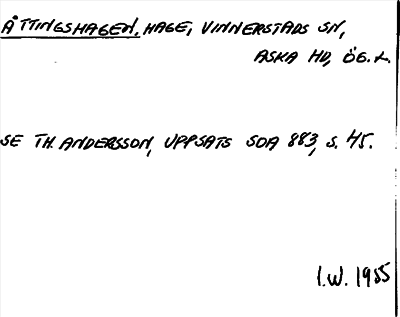 ÅTTINGSHAGEN, HAGE, VINNERSTADS SN,
ASKA HD, ÖG. L.
SE TH. ANDERSSON, UPPSATS SOA 883, S. 45.
I.W. 1985